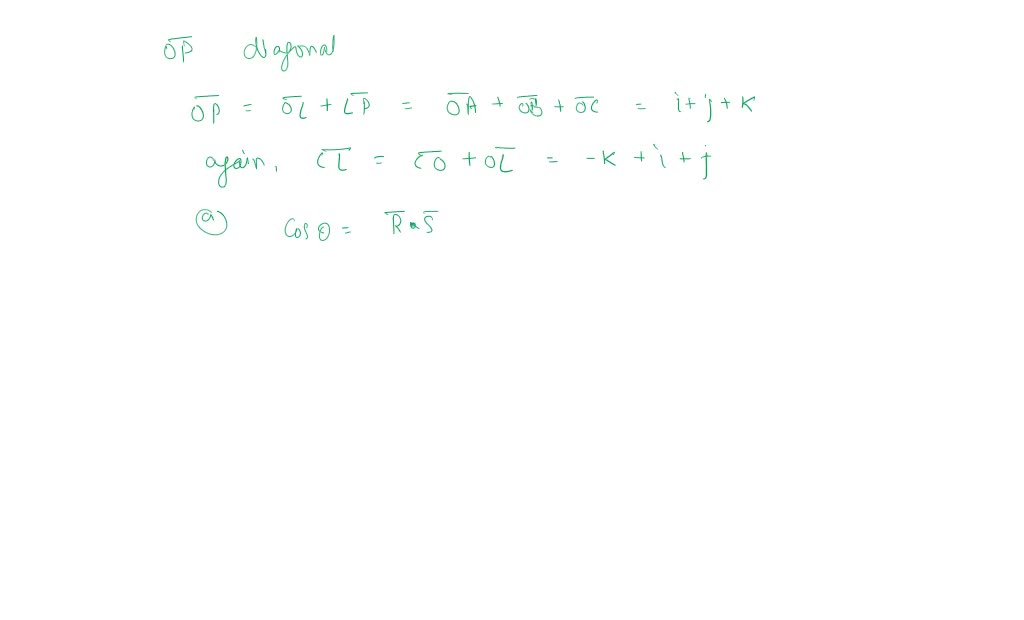 O̅P̅ diagonal
O̅P̅ = O̅L̅ + L̅P̅ = O̅A̅ + O̅B̅ + O̅C̅ = i + j + k
again, C̅L̅ = C̅O̅ + O̅L̅ = -k + i + j
(a) Cos θ = R̅ . S̅